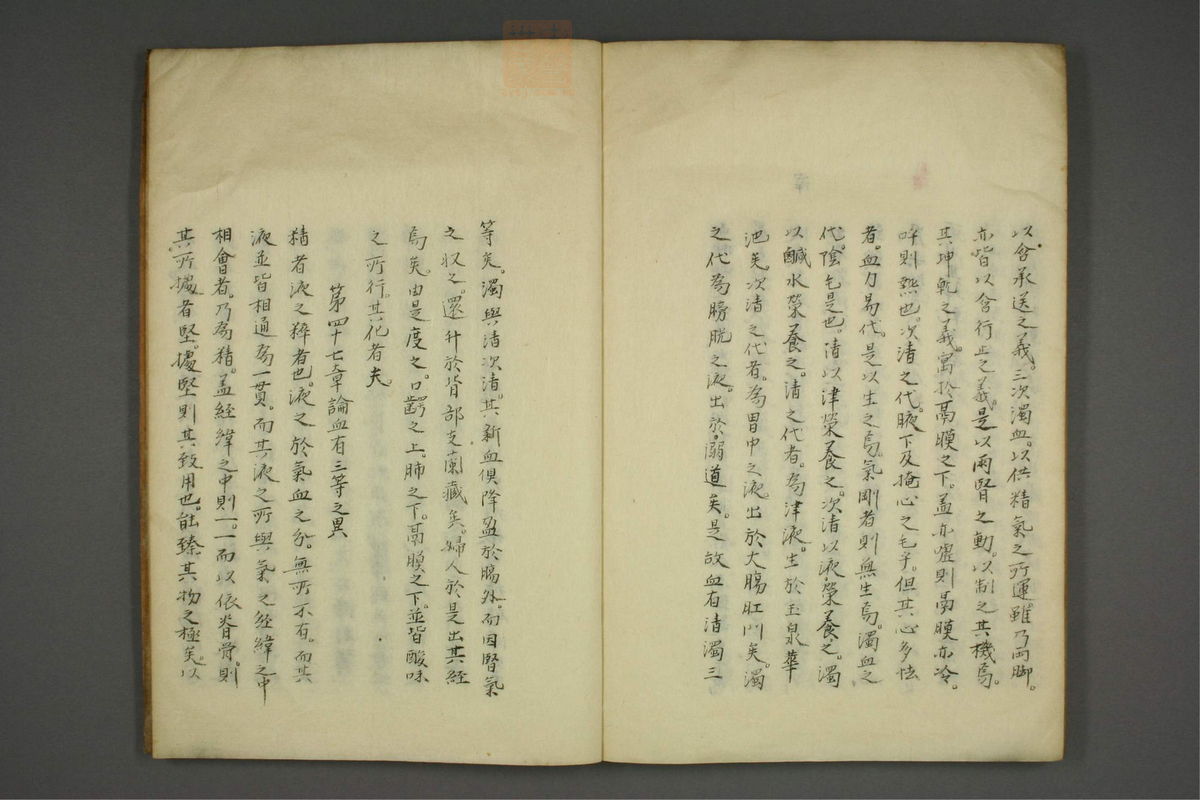 以含承送之義。三次濁血。以供精氣之所運雖乃両脚。
亦皆以含行止之義。是以兩腎之動。以制之其機焉。
其坤乾之義。寓於鬲膜之下。盖亦嘘則鬲膜亦冷。
吁則熱也。次清之代。腋下及掩心之毛子。但其心多怯
者。血力易代。是以生之焉。氣剛者則無生焉。濁血之
代。陰乞是也。清以津榮養之。次清以液榮養之。濁
以鹹水榮養之。清之代者。為津液。生於玉泉華
池矣。次清之代者。為胃中之液。出於大膓肛門矣。濁
之代為膀胱之液。出於溺道矣。是故血有清濁三
等矣。濁與清次清。其新血俱降盈於膓外。而因腎氣
之収之。還升於背部支蘭藏矣。婦人於是出其經
焉矣。由是度之。口齶之上。肺之下。鬲膜之下。並皆酸味
之所行。其化者夫
第四十七章論血有三等之異
精者液之粹者也。液之於氣血之分。無所不有。而其
液並皆相通為一貫。而其液之所與氣之經緯之中
相會者。乃為精。盖經緯之中則一。一而以依脊骨。則
其所據者堅。據堅則其致用也。能臻其物之極矣。以